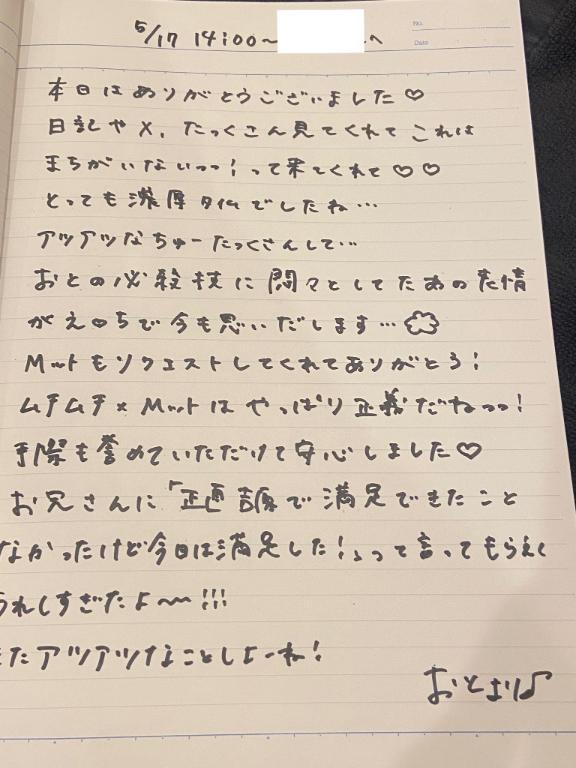 No.
Date
5/17 14:00〜 へ
本日はありがとうございました♡
日記やX、たっくさん見てくれて これは
まちがいないっっ！って来てくれて♡♡
とっても濃厚タイムでしたね…
アツアツなちゅーたっくさんして…
おとの必殺技に悶々としてたあの表情
がえ♡ちで今も思いだします…
Mットもリクエストしてくれてありがとう！
ムチムチ×Mットは やっぱり正義だねっっ！
手際も誉めていただけて安心しました♡
お兄さんに「正直吉原で満足できたこと
なかったけど今日は満足した！」って言ってもらえて
うれしすぎたよ〜!!!
またアツアツなことしよーね！
おとより♪